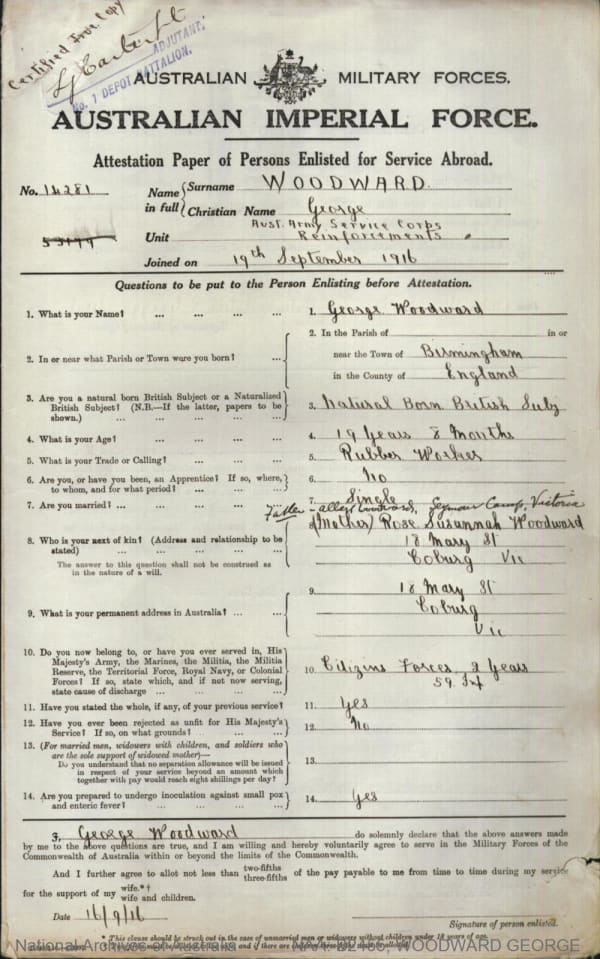 Certified True Copy
ADJUTANT,
No. 1 DEPOT BATTALION.
AUSTRALIAN MILITARY FORCES.
AUSTRALIAN IMPERIAL FORCE.
Attestation Paper of Persons Enlisted for Service Abroad.
No. 14281
Name in full { Surname WOODWARD.
Christian Name George
Unit Aust. Army Service Corps
Reinforcements
Joined on 19th September 1916
Questions to be put to the Person Enlisting before Attestation.
1. What is your Name? ... ... ... ... 1. George Woodward
2. In or near what Parish or Town were you born? ... 2. In the Parish of in or
near the Town of Birmingham
in the County of England
3. Are you a natural born British Subject or a Naturalized
British Subject? (N.B.—If the latter, papers to be
shown.) ... ... ... ... 3. Natural Born British Subj
4. What is your Age? ... ... ... ... 4. 19 Years 8 Months
5. What is your Trade or Calling? ... ... ... 5. Rubber Worker
6. Are you, or have you been, an Apprentice? If so, where,
to whom, and for what period? ... ... ... 6. No
7. Are you married? ... ... ... ... 7. Single
Father - Seymour Camp, Victoria
8. Who is your next of kin? (Address and relationship to be
stated) ... ... ... ... ...
The answer to this question shall not be construed as
in the nature of a will.
(Mother) Rose Susannah Woodward
18 Mary St
Coburg Vic
9. What is your permanent address in Australia? ... ...
9. 18 Mary St
Coburg
Vic
10. Do you now belong to, or have you ever served in, His
Majesty's Army, the Marines, the Militia, the Militia
Reserve, the Territorial Force, Royal Navy, or Colonial
Forces? If so, state which, and if not now serving,
state cause of discharge ... ... ...
10. Citizins Forces 2 Years
59. Inf
11. Have you stated the whole, if any, of your previous service? 11. Yes
12. Have you ever been rejected as unfit for His Majesty's
Service? If so, on what grounds? ... ... 12. No
13. (For married men, widowers with children, and soldiers who
are the sole support of widowed mother)—
Do you understand that no separation allowance will be issued
in respect of your service beyond an amount which
together with pay would reach eight shillings per day?
13.
14. Are you prepared to undergo inoculation against small pox
and enteric fever? ... ... ... ... 14. Yes
I, George Woodward do solemnly declare that the above answers made
by me to the above questions are true, and I am willing and hereby voluntarily agree to serve in the Military Forces of the
Commonwealth of Australia within or beyond the limits of the Commonwealth.
And I further agree to allot not less than two-fifths three-fifths of the pay payable to me from time to time during my service
for the support of my wife.*† wife and children.
Date 16/9/16
Signature of person enlisted.
* This clause should be struck out in the case of unmarried men or widowers without children under 18 years of age.
National Archives of Australia NAA: B2455, WOODWARD GEORGE